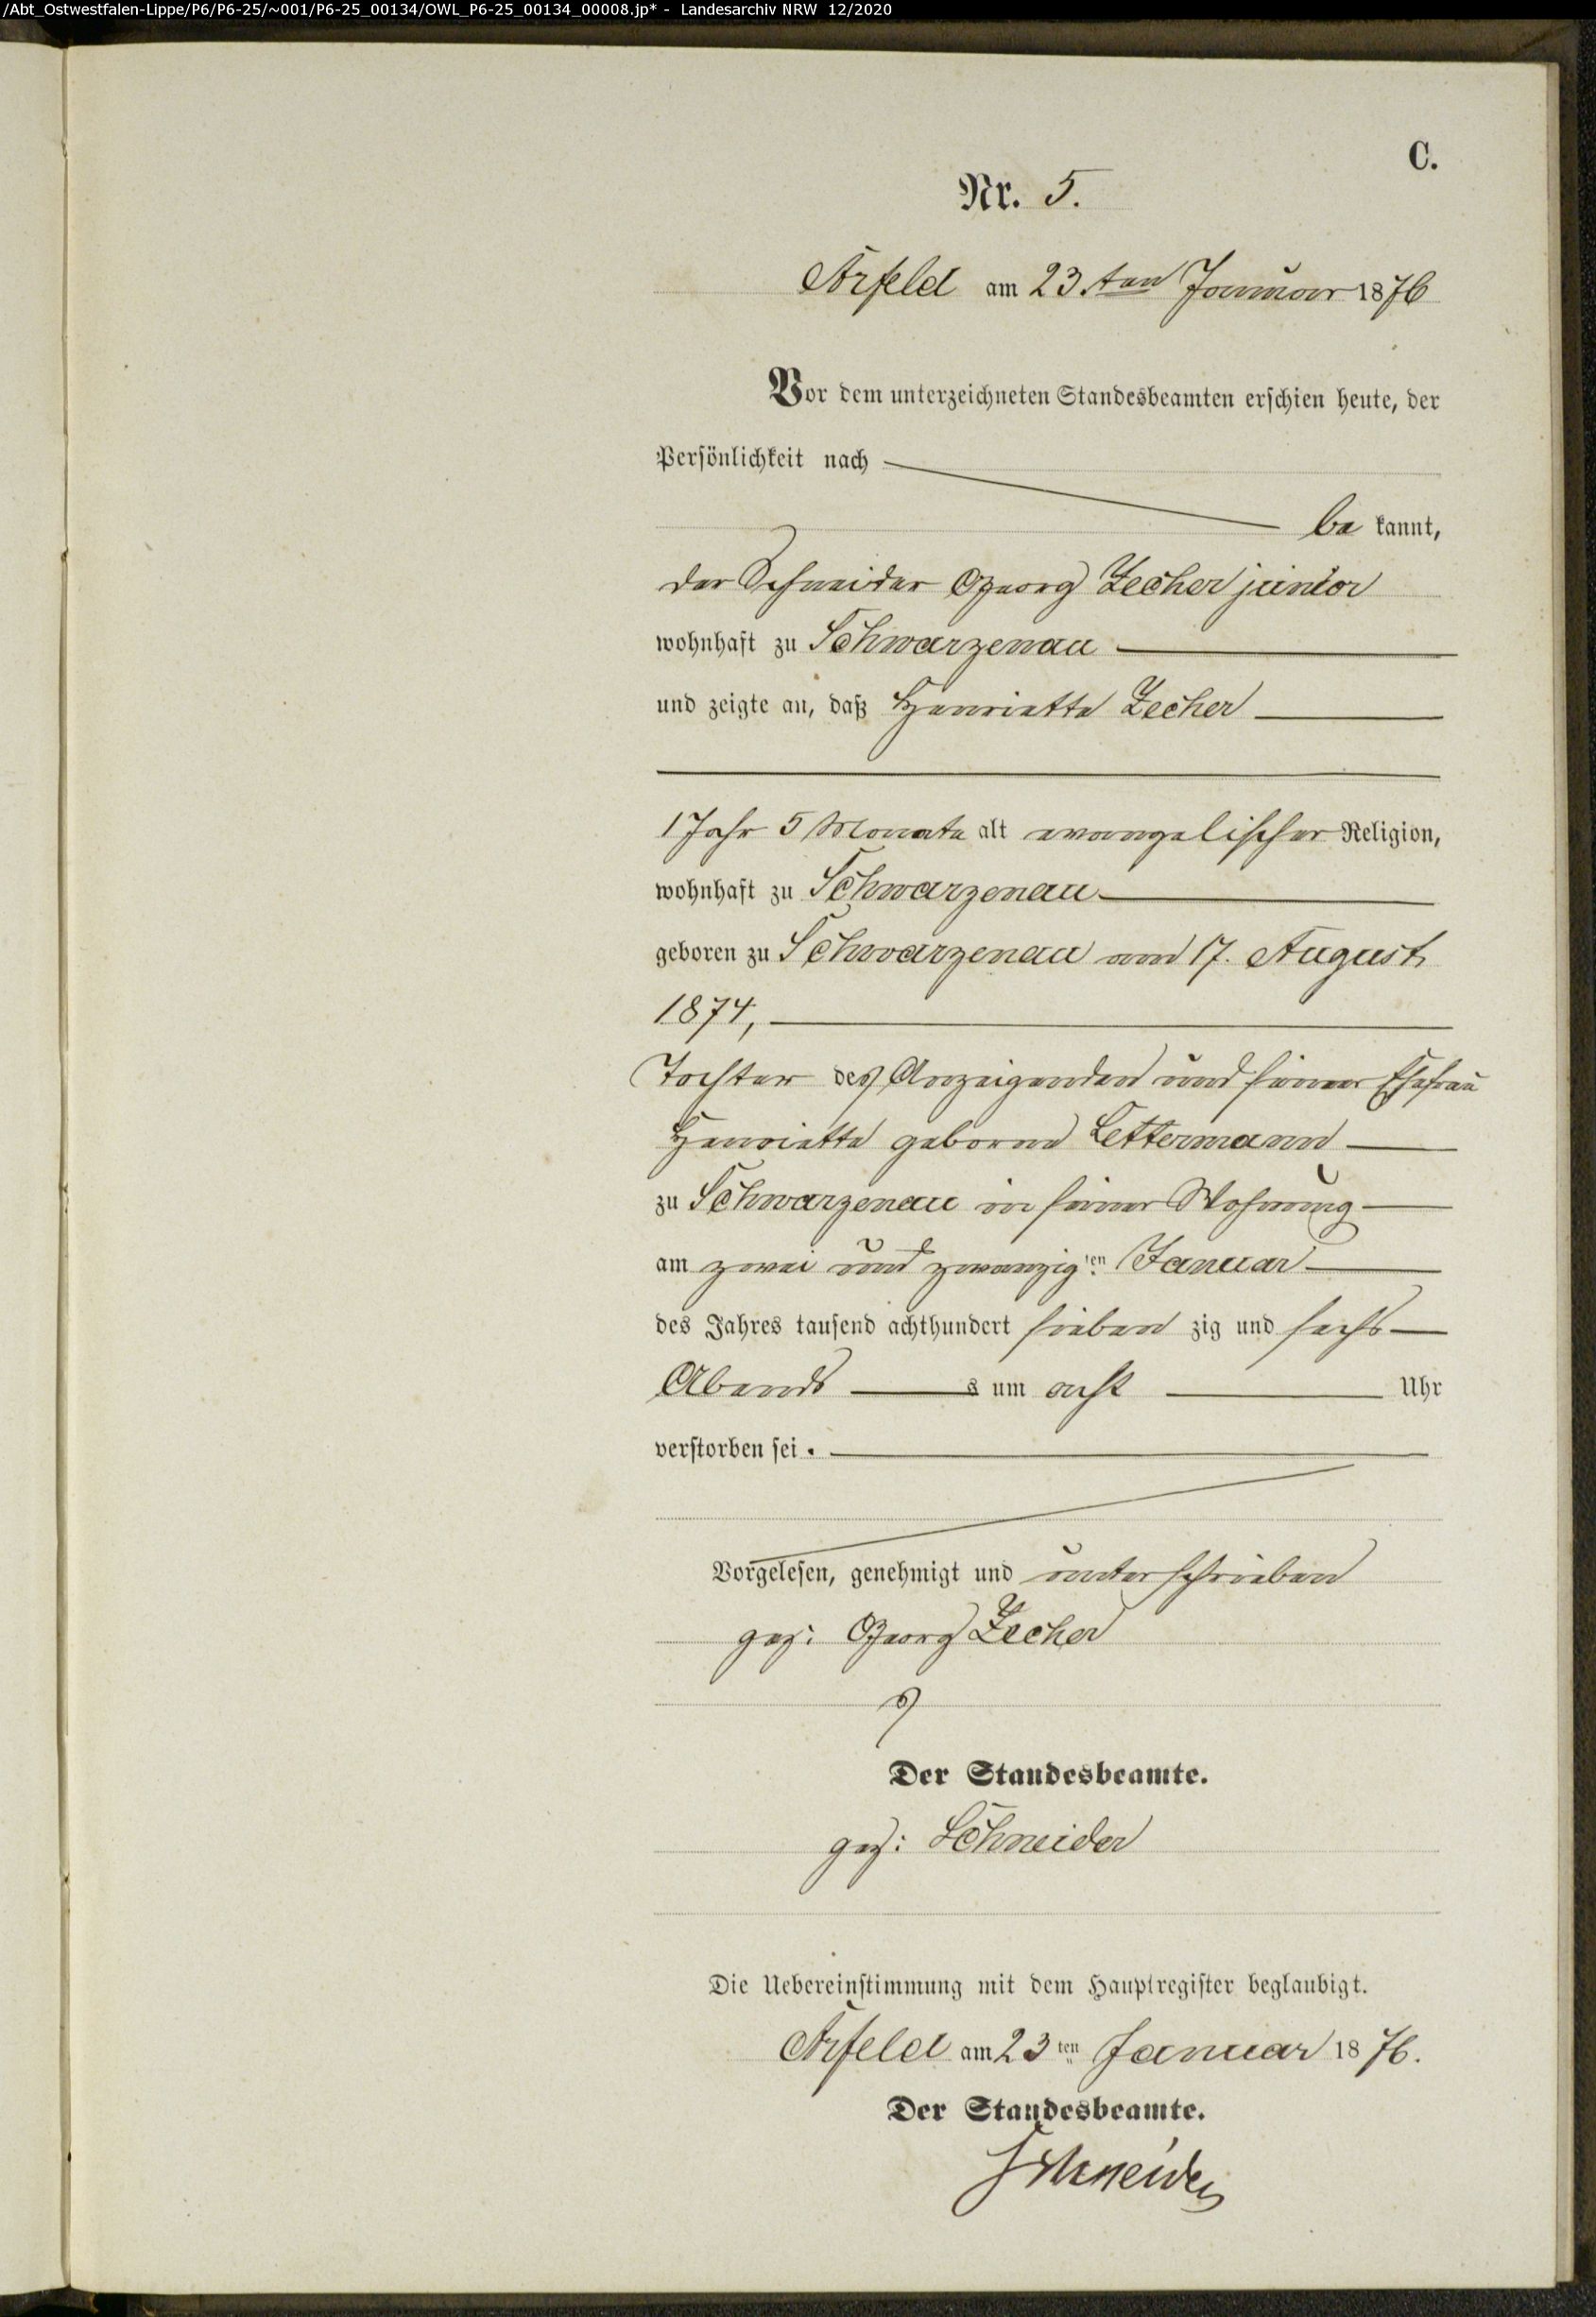 /Abt_Ostwestfalen-Lippe/P6/P6-25/~001/P6-25_00134/OWL_P6-25_00134_00008.jp* - Landesarchiv NRW 12/2020
C.
Nr. 5.
Arfeld am 23ten Januar 1876
Vor dem unterzeichneten Standesbeamten erschien heute, der
Persönlichkeit nach
be kannt,
der Schneider Georg Zecher junior
wohnhaft zu Schwarzenau
und zeigte an, daß Henriette Zecher
1 Jahr 5 Monate alt evangelischer Religion,
wohnhaft zu Schwarzenau
geboren zu Schwarzenau am 17. August
1874,
Tochter des Anzeigenden und seiner Ehefrau
Henriette geborne Lettermann
zu Schwarzenau in seiner Wohnung
am zwei und zwanzigten Januar
des Jahres tausend achthundert sieben zig und sechs
Abends s um acht Uhr
verstorben sei.
Vorgelesen, genehmigt und unterschrieben
gez: Georg Zecher
Der Standesbeamte.
gez: Schneider
Die Uebereinstimmung mit dem Hauptregister beglaubigt.
Arfeld am 23ten Januar 1876.
Der Standesbeamte.
Schneider